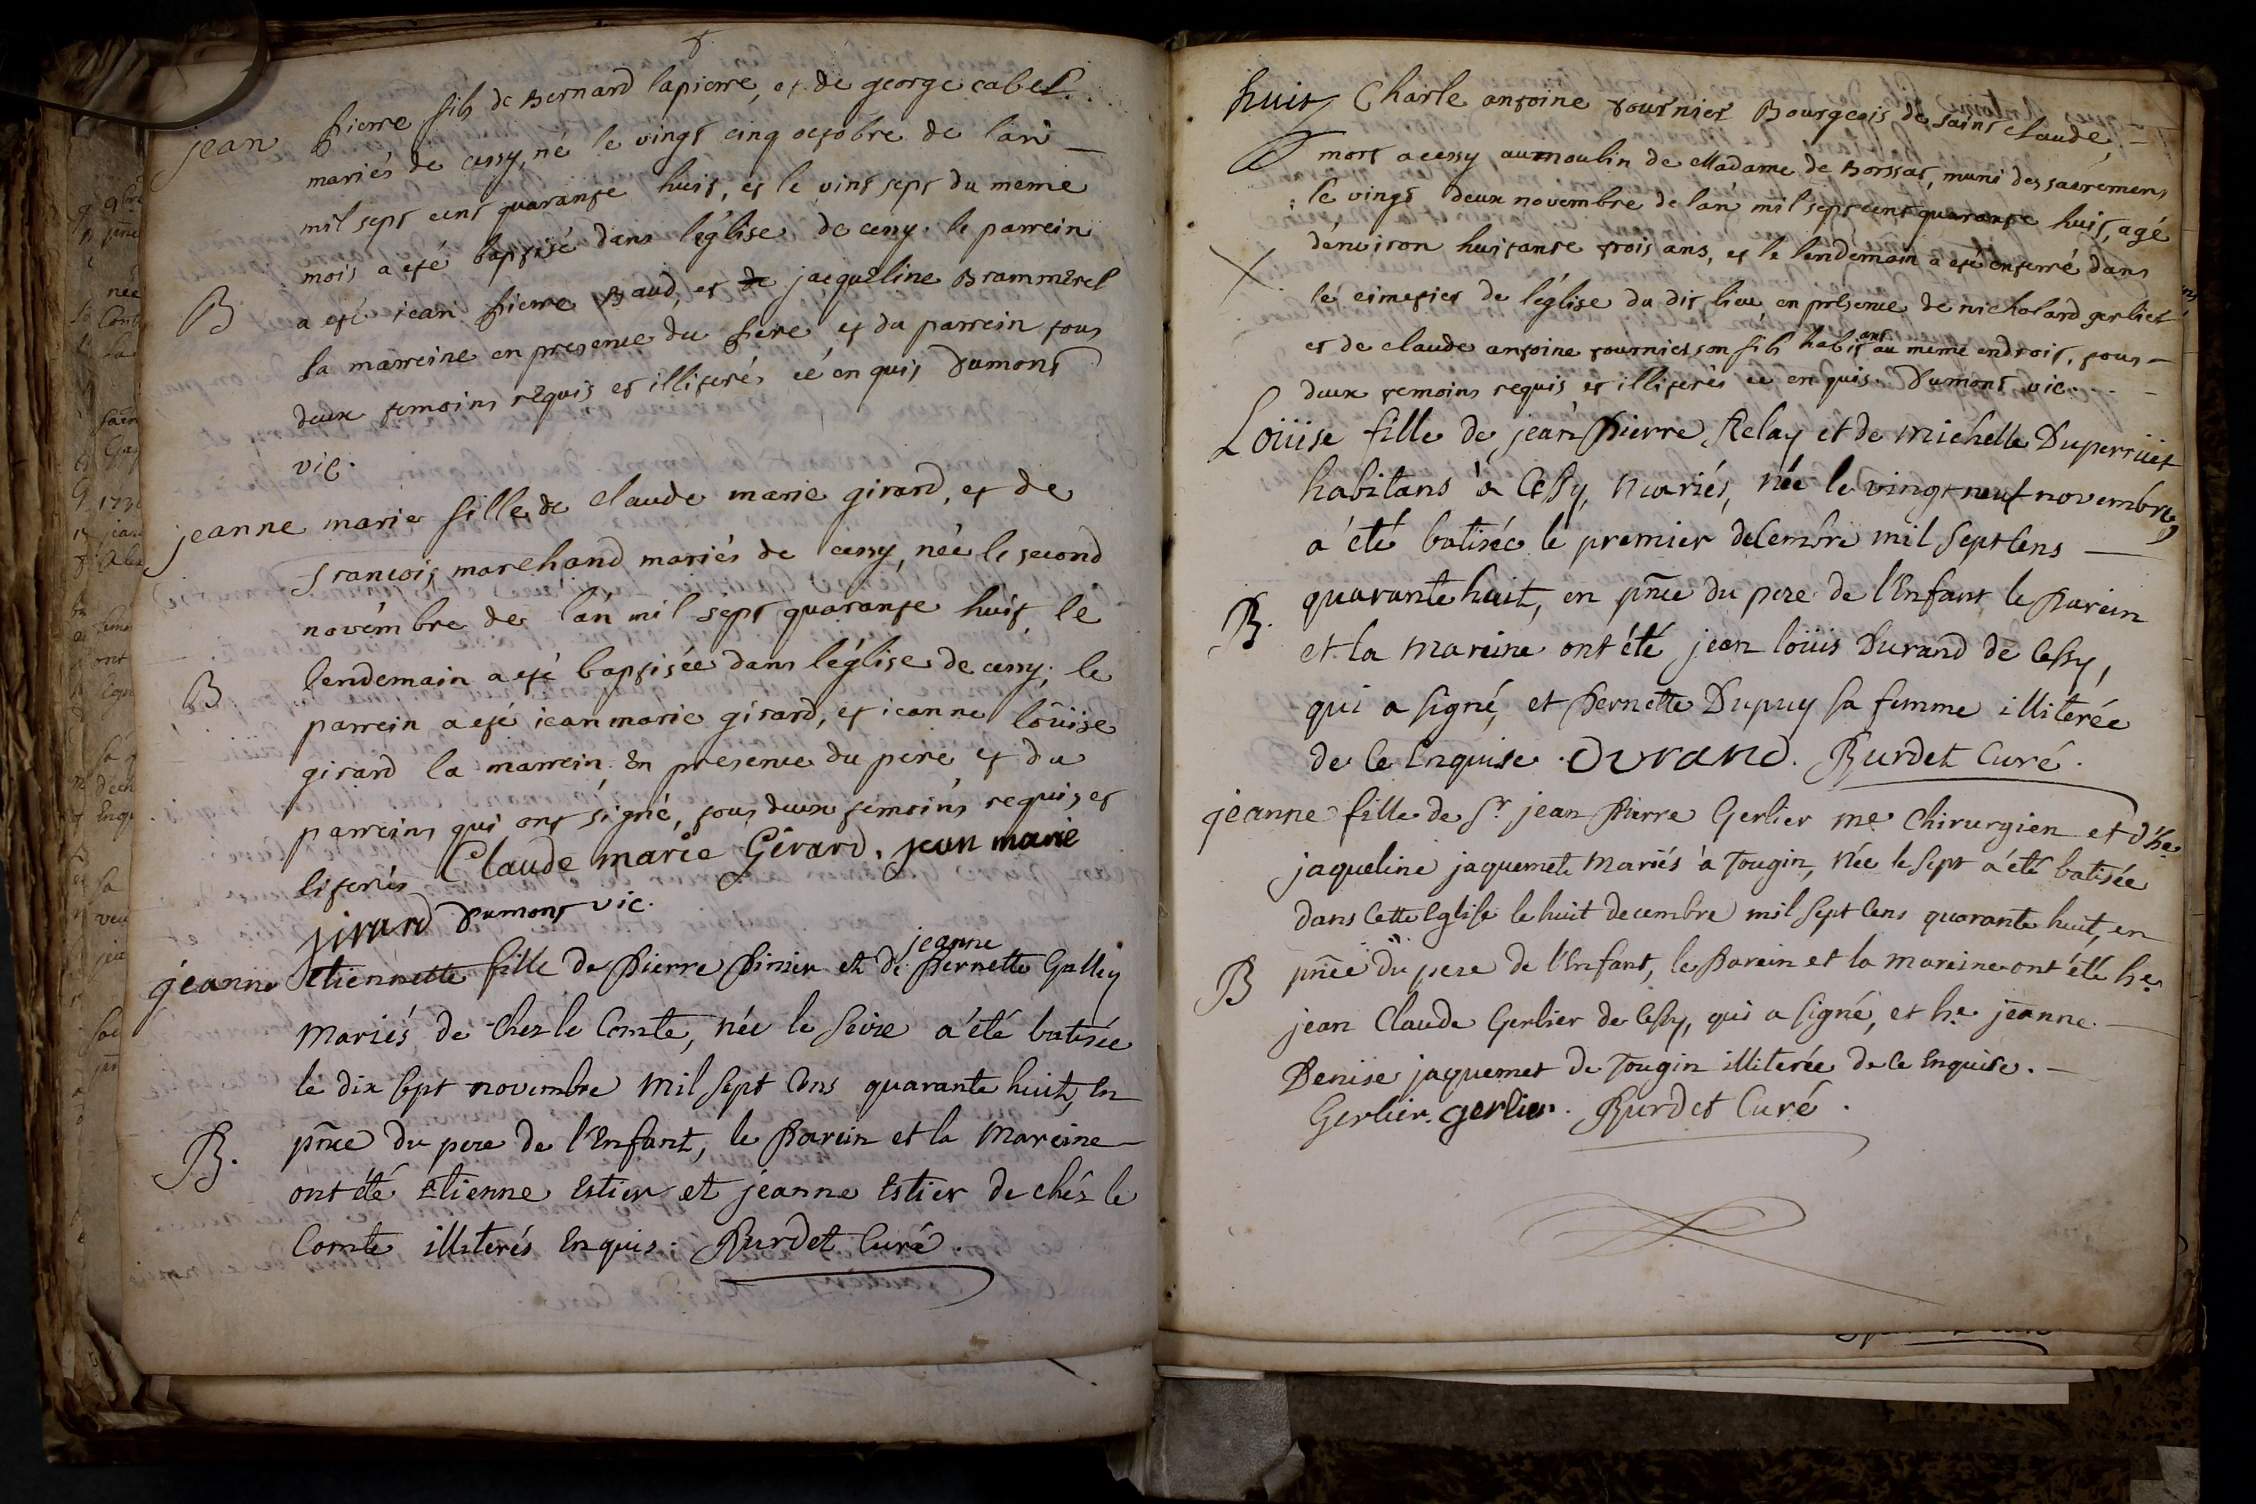 jean pierre fils de Bernard lapierre, et de george cabet
mariés de cessy, né le vingt cinq octobre de lan
mil sept cent quarante huit, et le vint sept du meme
mois a eté baptisé dans l'église de cessy. le parrein
B a eté jean pierre Baud, et de jacqueline Brammerel
la marreine en presence du pere et du parrein tous
deux temoins requis et illiterés éé enquis Dumont
vic.
jeanne marie fille de claude marie girard, et de
francois marchand mariés de cessy, née le second
novémbre de lán mil sept quarante huit le
B lendemain a eté baptisée dans léglise de cessy; le
parrein a eté jean marie girard, et jeanne loüise
girard la marrein. En presence du pere, et du
parreins qui ont signé, tous deux temoins requis et
literés Claude marie Girard. jean marie
jirard Dumont vic.
jeanne
jeanne Etiennette fille de Pierre Pinier et de Pernette Galley
Mariés de Chez le Comte, née le Seize a été batisée
le dix sept novembre mil sept Cens quarante huit, En
B. pñce du pere de l'Enfant, le Parein et la Mareine
ont été Etienne Estier et jeanne Estier de chéz le
Comte illiterés Enquis. Burdet Curé.
huit Charle antoine tournier Bourgeois de saint claude,
mort a cessy au moulin de Madame de Borssat, muni des sacremens
le vingt deux novembre de lán mil sept cent quarante huit, agé
dénviron huitante trois ans, et le lendemain a eté enterré dans
lé cimetier de l'église du dit lieu, en présence de nicholard gerlier
et de claude antoine tournier son fils habitant au meme endroit, tous
deux temoins requis et illiterés ee enquis. Dumont vic.
Loüise fille de jean Pierre Relay et de Michelle Duperrüet
habitans à Cessy, Mariés, née le vingt neuf novembre,
a été batisée le premier decembre mil Sept Cens
B. quarante huit, en pñce du pere de l'Enfant le Parein
et la Mareine ont été jean loüis Durand de Cessy,
qui a signé, et Pernette Dupuy sa femme illiterée
de Ce Enquise. DURAND. Burdet Curé.
jeanne fille de Sr jean Pierre Gerlier me Chirurgien et d'he.
jaqueline jaquemet Mariés à Tougin, née le Sept a été batisée
dans Cette Eglise le huit decembre mil Sept Cens quarante huit, en
B pñce du pere de l'Enfant, le Parein et la mareine ont été he.
jean Claude Gerlier de Cessy, qui a signé, et he. jeanne
Denise jaquemet de Tougin illiterée de Ce Enquise.
Gerlier. gerlier. Burdet Curé.